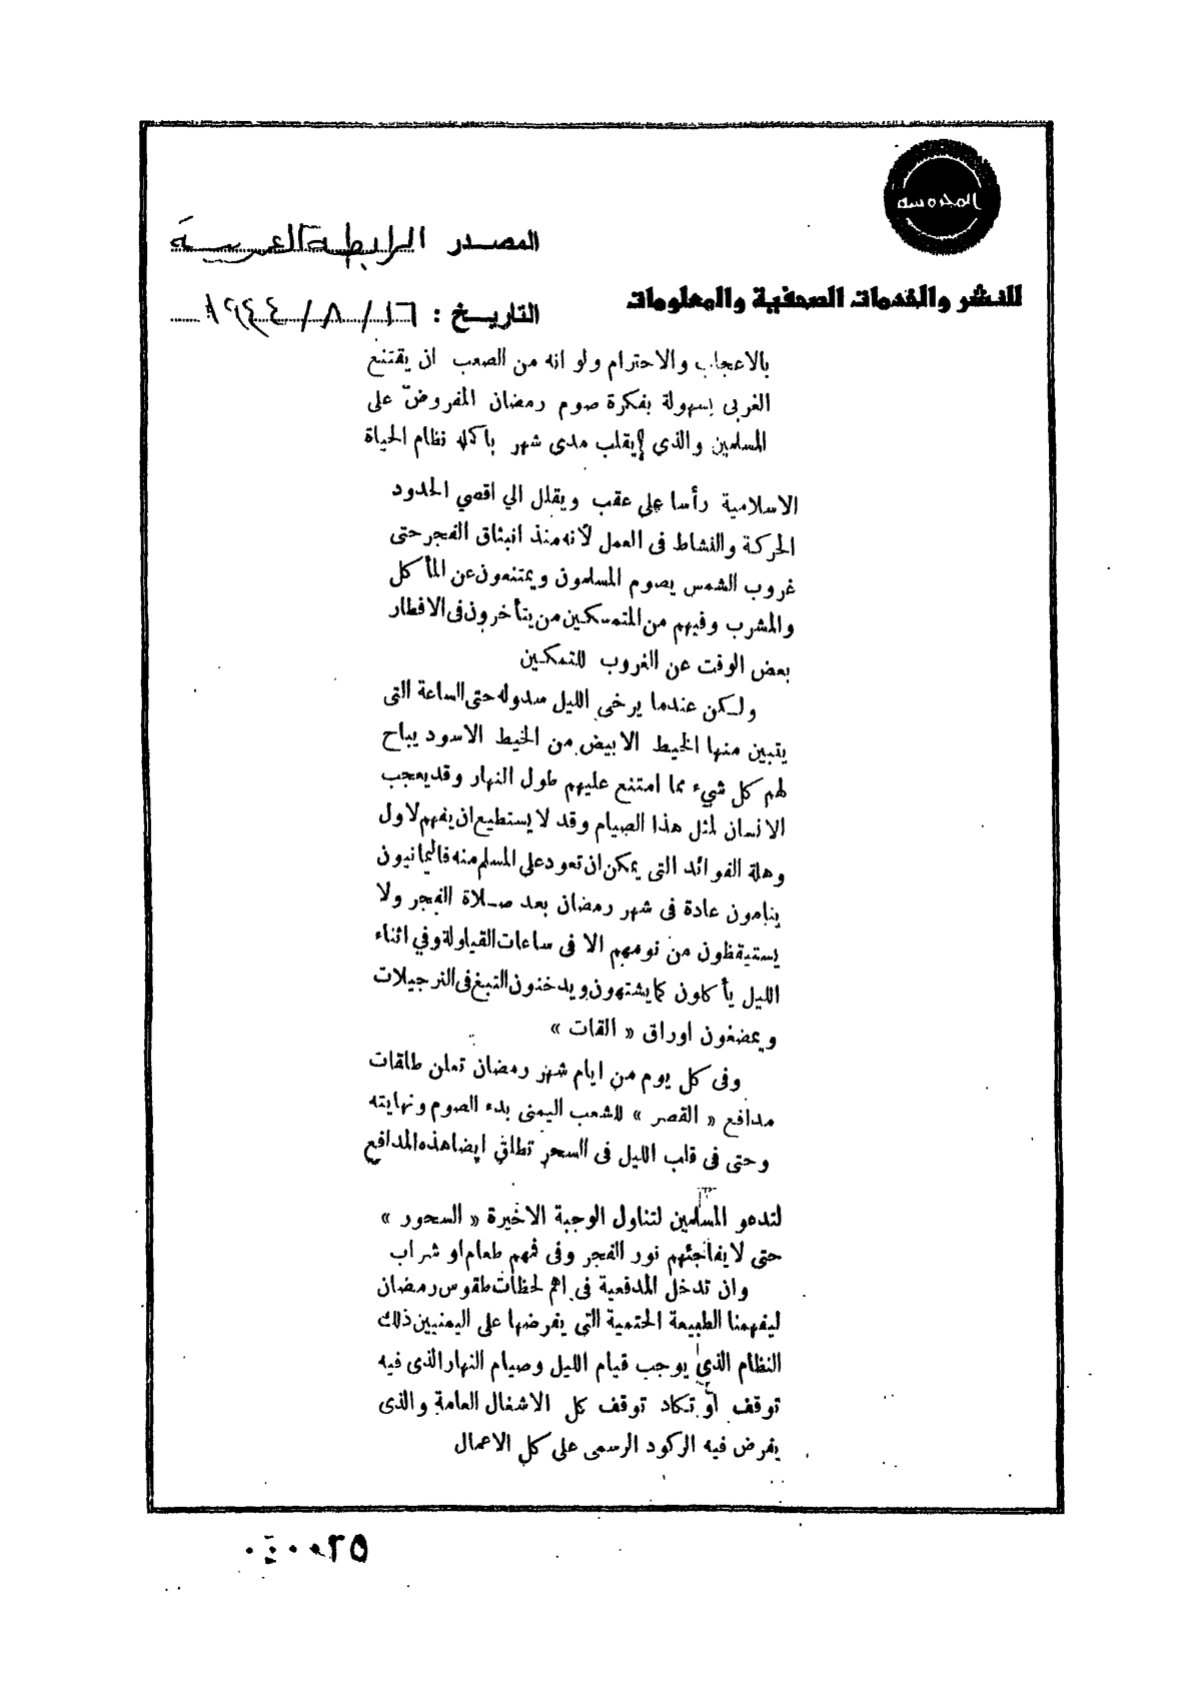 المحروسه
المصدر الرابطة العربية
للنشر والخدمات الصحفية والمعلومات
التاريخ : ١٦ / ٨ / ١٩٤٤
بالاعجاب والاحترام ولو انه من الصعب ان يقتنع
الغربى بسهولة بفكرة صوم رمضان المفروض على
المسلمين والذى يقلب مدى شهر باكمله نظام الحياة
الاسلامية رأسا على عقب ويقلل الي اقصي الحدود
الحركة والنشاط فى العمل لأنه منذ انبثاق الفجر حتى
غروب الشمس يصوم المسلمون ويمتنعون عن المأكل
والمشرب وفيهم من المتمسكين من يتأخرون فى الافطار
بعض الوقت عن الغروب للتمكين
ولكن عندما يرخى الليل سدوله حتى الساعة التى
يتبين منها الخيط الابيض من الخيط الاسود يباح
لهم كل شيء مما امتنع عليهم طول النهار وقد يعجب
الانسان لمثل هذا الصيام وقد لا يستطيع ان يفهم لاول
وهلة الفوائد التى يمكن ان تعود على المسلم منه فاليمانيون
ينامون عادة فى شهر رمضان بعد صلاة الفجر ولا
يستيقظون من نومهم الا فى ساعات القياولة وفي اثناء
الليل يأكلون كما يشتهون ويدخنون التبغ فى النرجيلات
ويمضغون اوراق « القات »
وفى كل يوم من ايام شهر رمضان تعلن طلقات
مدافع « القصر » للشعب اليمنى بدء الصوم ونهايته
وحتى فى قلب الليل فى السحر تطلق ايضا هذه المدافع
لتدعو المسلمين لتناول الوجبة الاخيرة « السحور »
حتى لا يفاجئهم نور الفجر وفى فمهم طعام او شراب
وان تدخل المدفعية فى اهم لحظات طقوس رمضان
ليفهمنا الطبيعة الحتمية التى يفرضها على اليمنيين ذلك
النظام الذى يوجب قيام الليل وصيام النهار الذى فيه
توقف أو تكاد توقف كل الاشغال العامة والذى
يفرض فيه الركود الرسمى على كل الاعمال